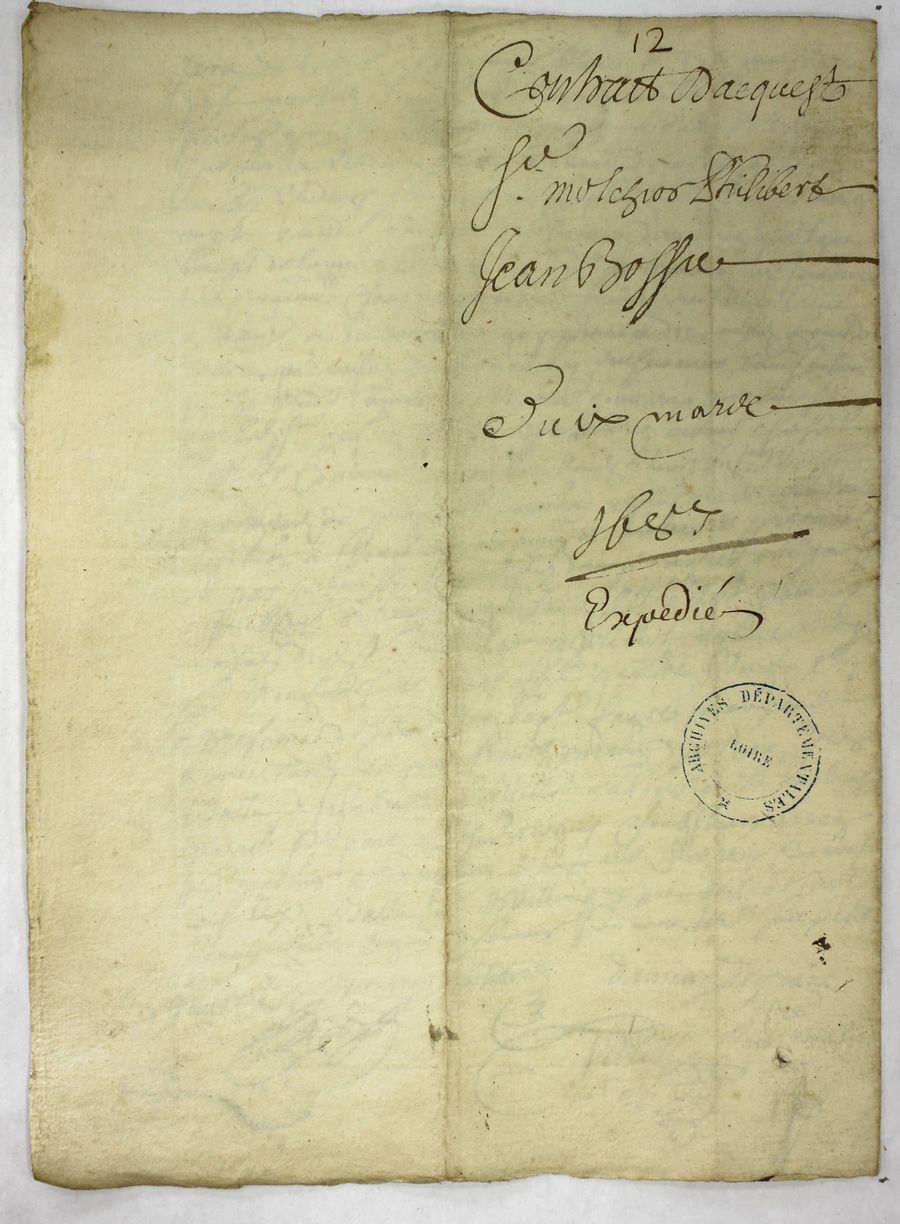 12
Contratt Dacquest
Sr. melchior Philibert
Jean Bossu
Du ix mars
168
Expedié
ARCHIVES DÉPARTEMENTALES
LOIRE